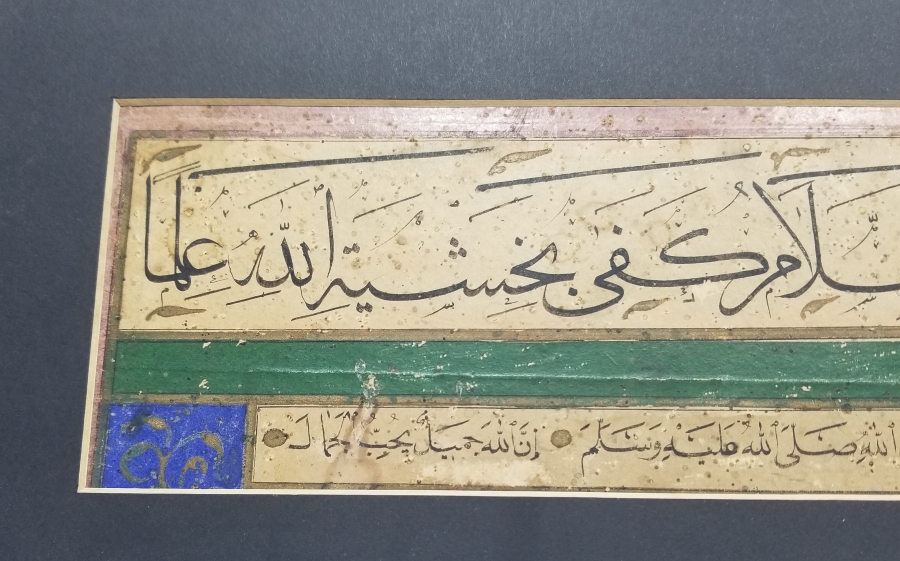 ـلام كَفَى بِخَشْيَةِ اللّٰهِ عِلْمًا
اللّٰهِ صَلَّى اللّٰهُ عَلَيْهِ وَسَلَّمَ إِنَّ اللّٰهَ جَمِيلٌ يُحِبُّ الْجَمَالَ